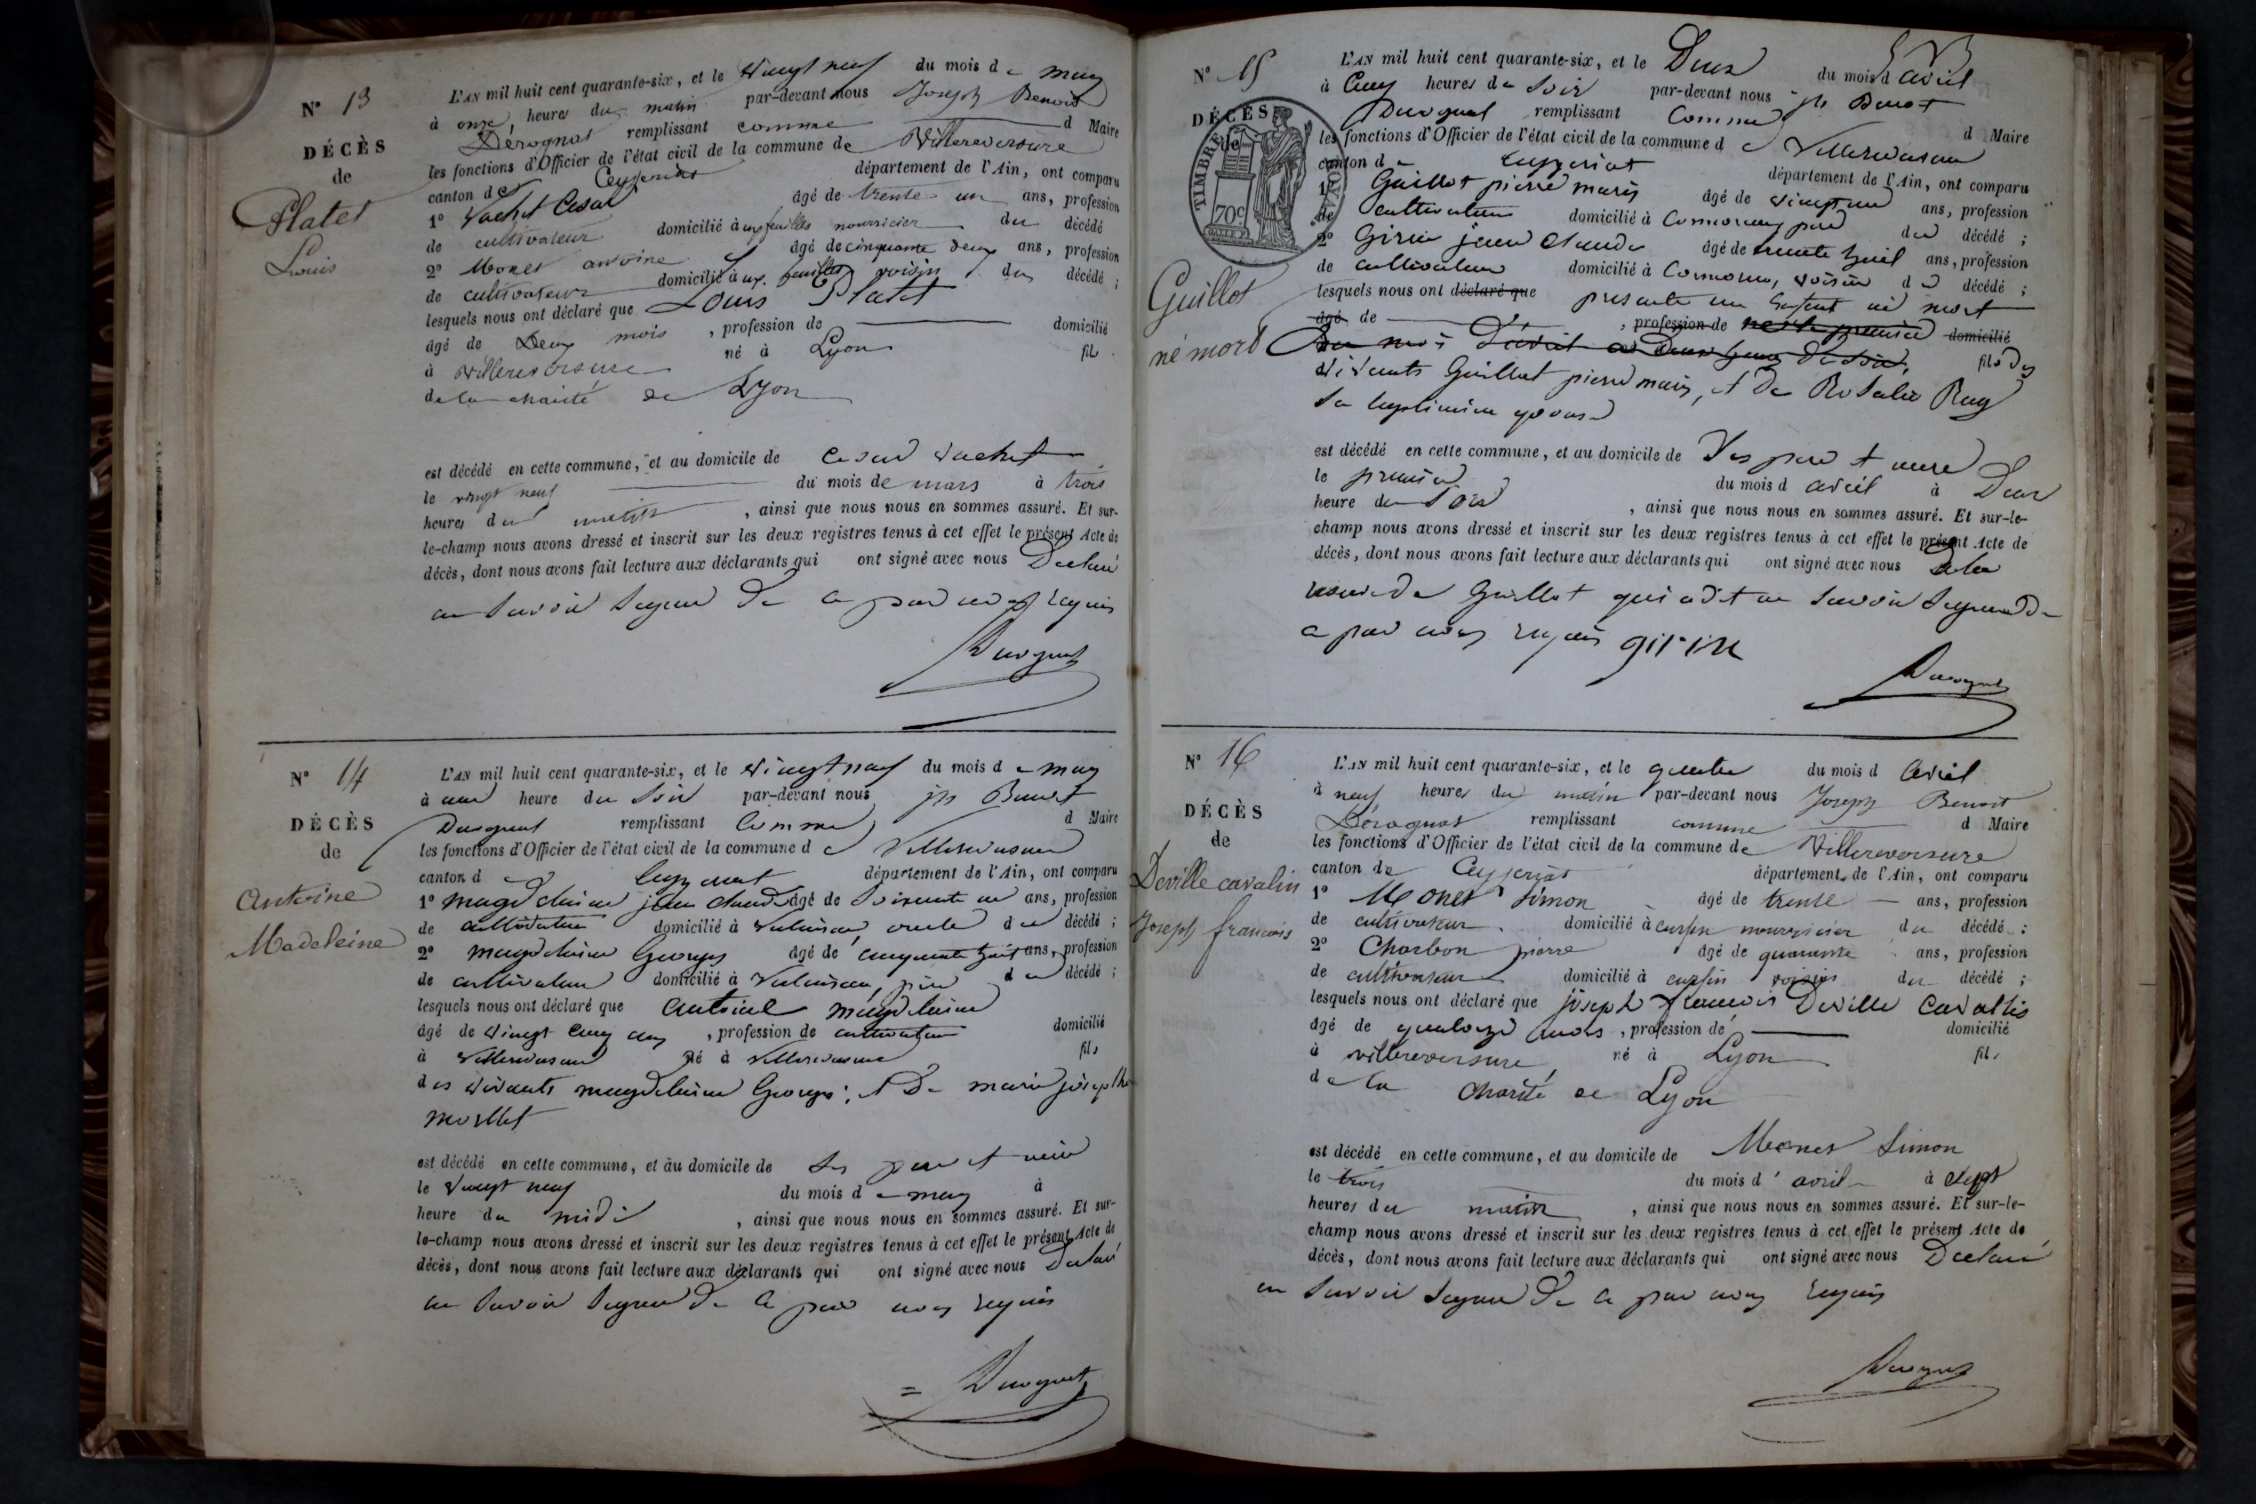 N° 13
DÉCÈS
de
Platet
Louis
L'AN mil huit cent quarante-six, et le vingt neuf du mois de mars
à onze heures du matin par-devant nous Joseph Benoit
Derognat remplissant comme d Maire
les fonctions d'Officier de l'état civil de la commune de Villereversure
canton de Ceyzeriat département de l'Ain, ont comparu
1° Vachet Cesar âgé de trente un ans, profession
de cultivateur domicilié à nourricier du décédé
2° Monet antoine âgé de cinquante deux ans, profession
de cultivateur domicilié à voisin du décédé ;
lesquels nous ont déclaré que Louis Platet
âgé de Deux mois , profession de domicilié
à Villereversure né à Lyon fils
de la charité de Lyon
est décédé en cette commune, et au domicile de Cesar Vachet
le vingt neuf du mois de mars à trois
heures du matin , ainsi que nous nous en sommes assuré. Et sur-
le-champ nous avons dressé et inscrit sur les deux registres tenus à cet effet le présent Acte de
décès, dont nous avons fait lecture aux déclarants qui ont signé avec nous Declaré
ne Savoir Signer De ce par nous requis
Derognat
N° 14
DÉCÈS
de
Antoine
Madeleine
L'AN mil huit cent quarante-six, et le vingt neuf du mois de mars
à une heure du Soir par-devant nous jh Benoit
Derognat remplissant Comme d Maire
les fonctions d'Officier de l'état civil de la commune de Villereversure
canton de Ceyzeriat département de l'Ain, ont comparu
1° magdelaine jean claude âgé de Soixante un ans, profession
de cultivateur domicilié à oncle du décédé ;
2° magdelaine Georges âgé de cinquante huit ans, profession
de cultivateur domicilié à père du décédé ;
lesquels nous ont déclaré que antoine magdelaine
âgé de vingt cinq ans , profession de cultivateur domicilié
à Villereversure né à Villereversure fils
des vivants magdelaine Georges ; et De marie josephe
morellet
est décédé en cette commune, et au domicile de Ses pere et mere
le vingt neuf du mois de mars à
heure du midi , ainsi que nous nous en sommes assuré. Et sur-
le-champ nous avons dressé et inscrit sur les deux registres tenus à cet effet le présent Acte de
décès, dont nous avons fait lecture aux déclarants qui ont signé avec nous Declaré
ne Savoir Signer De ce par nous requis
Derognat
N° 15
DÉCÈS
de
TIMBRE ROYAL
70c
Guillot
né mort
L'AN mil huit cent quarante-six, et le Deux du mois d avril
à Cinq heures du Soir par-devant nous jh Benoit
Derognat remplissant Comme d Maire
les fonctions d'Officier de l'état civil de la commune de Villereversure
canton de Ceyzeriat département de l'Ain, ont comparu
1° Guillot pierre marie âgé de ans, profession
de cultivateur domicilié à père du décédé ;
2° Girin jean claude âgé de trente huit ans, profession
de cultivateur domicilié à voisin du décédé ;
lesquels nous ont déclaré que presenté un Enfant né mort
âgé de , profession de né le premier domicilié
Du mois D'avril a Deux heures Du Soir, fils Des
vivants Guillot pierre marie, et De Rosalie Ruy
Sa legitime epouse
est décédé en cette commune, et au domicile de Ses pere et mere
le premier du mois d avril à Deux
heure du Soir , ainsi que nous nous en sommes assuré. Et sur-le-
champ nous avons dressé et inscrit sur les deux registres tenus à cet effet le présent Acte de
décès, dont nous avons fait lecture aux déclarants qui ont signé avec nous De la
reserve De Guillot qui a dit ne Savoir Signer De
ce par nous requis girin
Derognat
N° 16
DÉCÈS
de
Deville cavalin
Joseph francois
L'AN mil huit cent quarante-six, et le quatre du mois d avril
à neuf heures du matin par-devant nous Joseph Benoit
Derognat remplissant comme d Maire
les fonctions d'Officier de l'état civil de la commune de Villereversure
canton de Ceyzeriat département de l'Ain, ont comparu
1° Monet Simon âgé de trente ans, profession
de cultivateur domicilié à nourricier du décédé ;
2° Charbon pierre âgé de quarante ans, profession
de cultivateur domicilié à voisin du décédé ;
lesquels nous ont déclaré que joseph francois Deville Cavallis
âgé de quatorze mois , profession de domicilié
à Villereversure né à Lyon fils
de la charité de Lyon
est décédé en cette commune, et au domicile de Monet Simon
le trois du mois d' avril à Sept
heures du matin , ainsi que nous nous en sommes assuré. Et sur-le-
champ nous avons dressé et inscrit sur les deux registres tenus à cet effet le présent Acte de
décès, dont nous avons fait lecture aux déclarants qui ont signé avec nous Declaré
ne Savoir Signer De ce par nous requis
Derognat